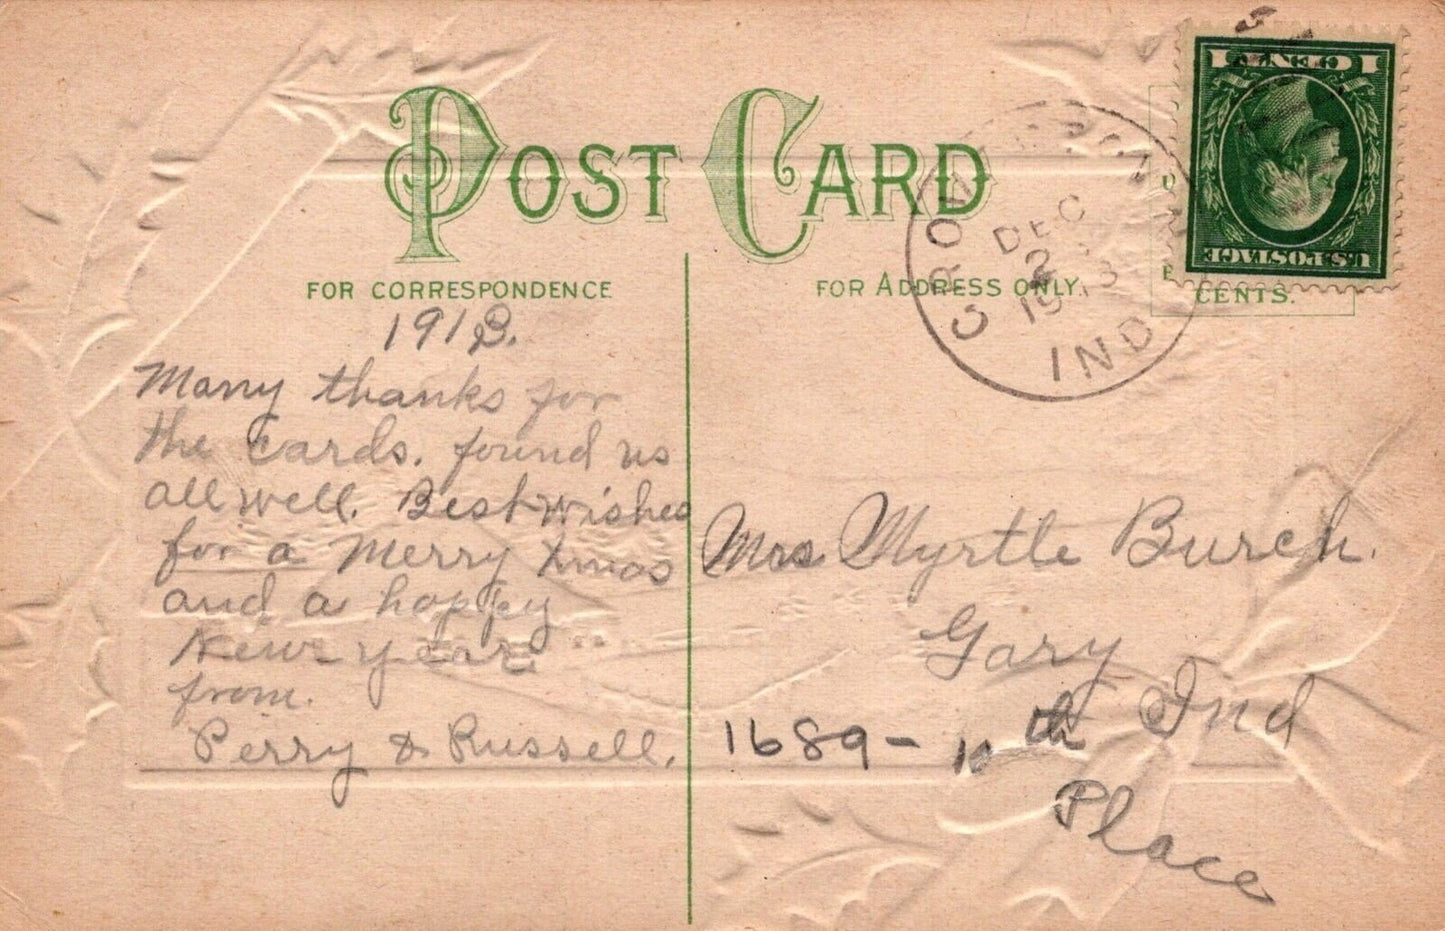 POST CARD
FOR CORRESPONDENCE
FOR ADDRESS ONLY.
1 CENT 1
U.S. POSTAGE
CENTS.
CROWN POINT
DEC
2
1913
IND
1913.
Many thanks for
the cards. found us
all well. Best wishes
for a Merry Xmas
and a happy
New year
from.
Perry & Russell.
Mrs Myrtle Burch.
Gary
Ind
1689 - 10th
Place